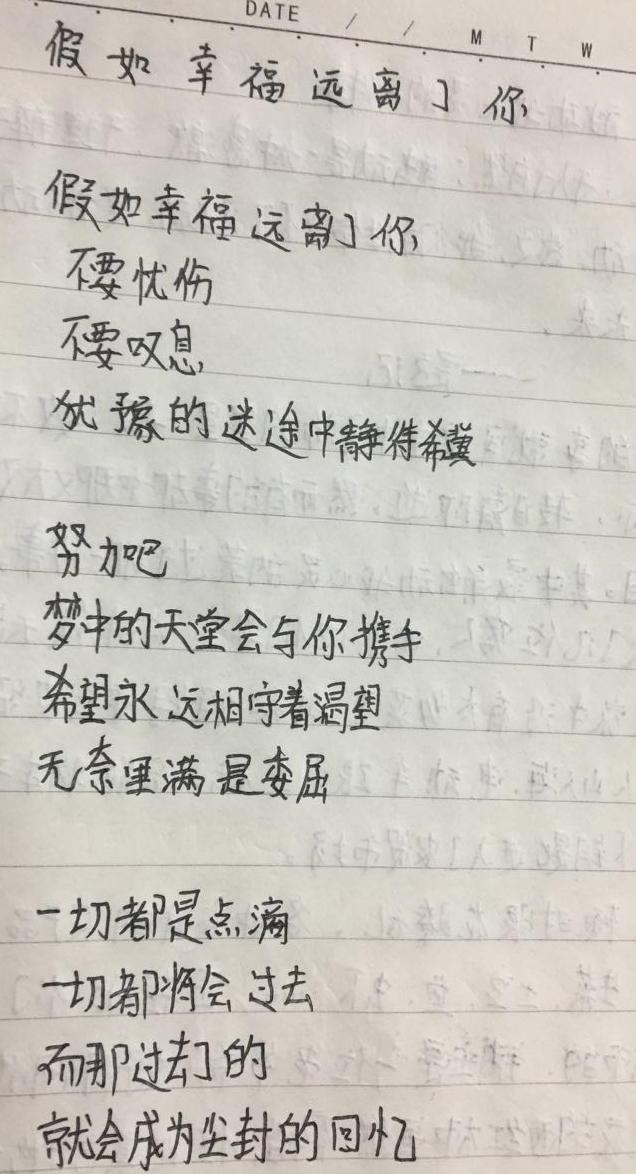 DATE / / M T W
假如幸福远离了你
假如幸福远离了你
不要忧伤
不要叹息
犹豫的迷途中静待希冀
努力吧
梦中的天堂会与你携手
希望永远相守着渴望
无奈里满是委屈
一切都是点滴
一切都将会过去
而那过去了的
就会成为尘封的回忆